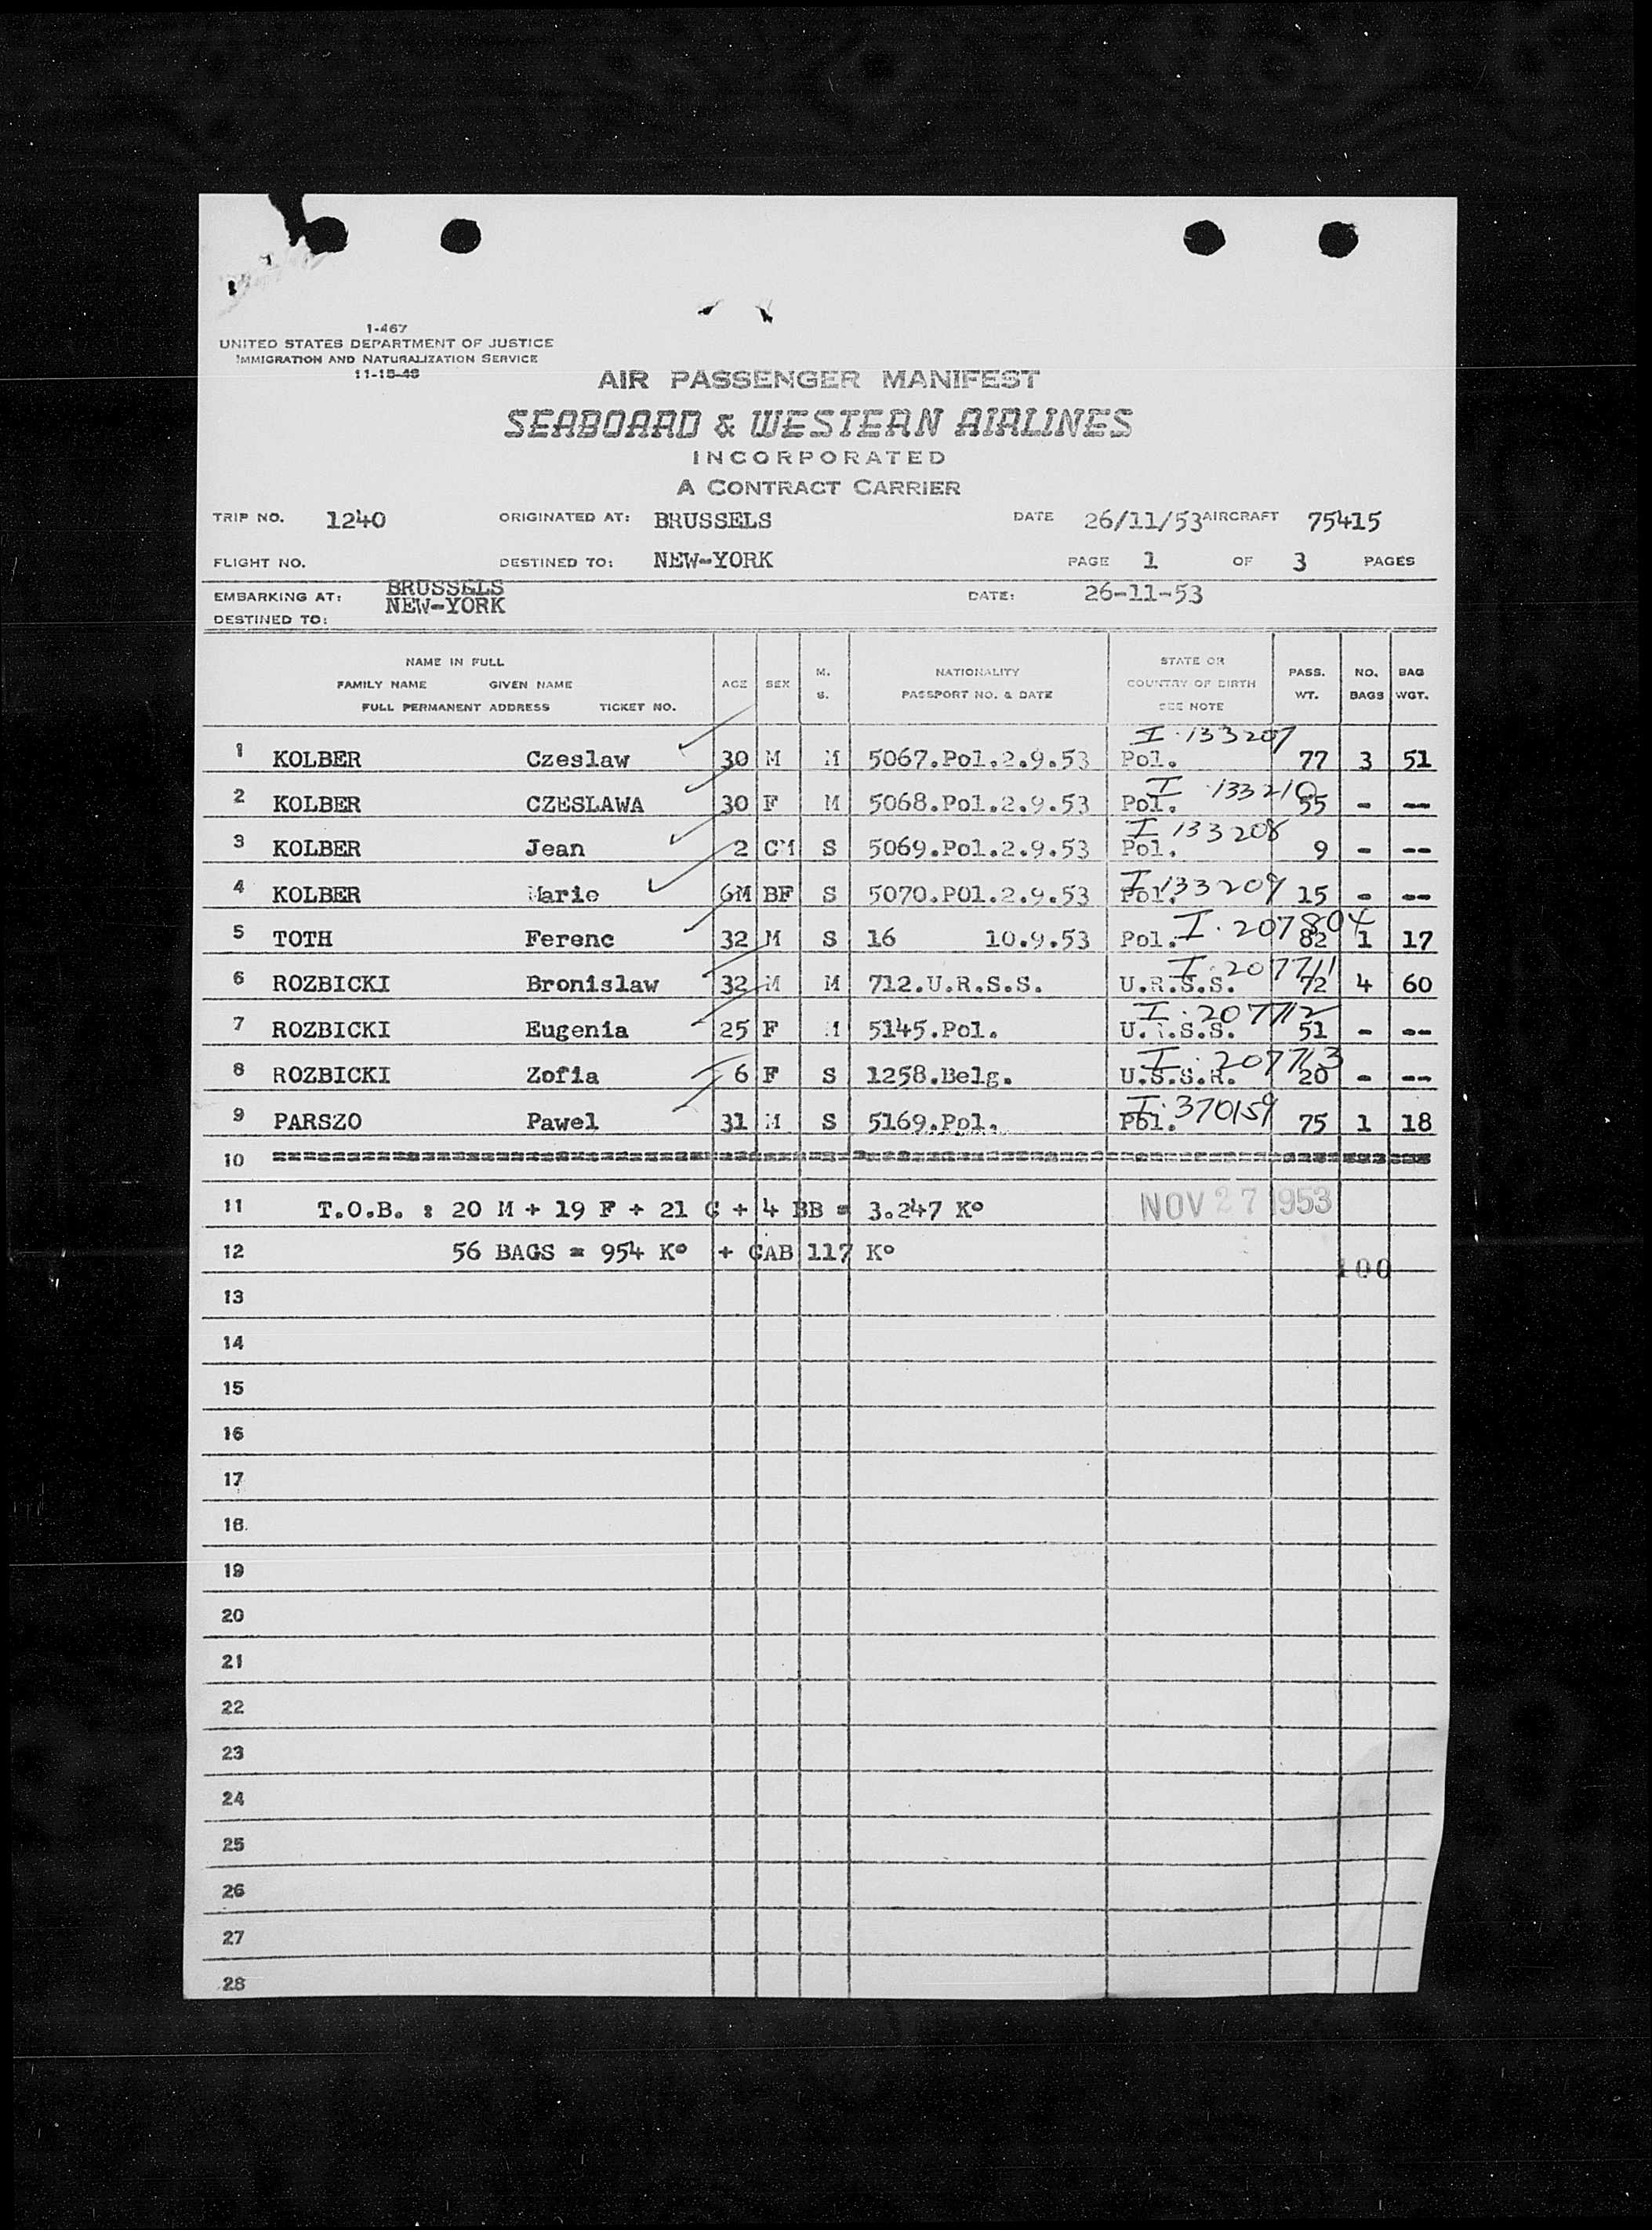 1-467
UNITED STATES DEPARTMENT OF JUSTICE
IMMIGRATION AND NATURALIZATION SERVICE
11-18-48
AIR PASSENGER MANIFEST
SEABOARD & WESTERN AIRLINES
INCORPORATED
A CONTRACT CARRIER
TRIP NO. 1240 ORIGINATED AT: BRUSSELS DATE 26/11/53 AIRCRAFT 75415
FLIGHT NO. DESTINED TO: NEW-YORK PAGE 1 OF 3 PAGES
EMBARKING AT: BRUSSELS DATE: 26-11-53
DESTINED TO: NEW-YORK
NAME IN FULL
FAMILY NAME GIVEN NAME
FULL PERMANENT ADDRESS TICKET NO.
AGE SEX M. S.
NATIONALITY
PASSPORT NO. & DATE
STATE OR
COUNTRY OF BIRTH
SEE NOTE
PASS. WT.
NO. BAGS
BAG WGT.
I 133207
1 KOLBER Czeslaw 30 M M 5067.Pol.2.9.53 Pol. 77 3 51
I 133210
2 KOLBER CZESLAWA 30 F M 5068.Pol.2.9.53 Pol. 55 - --
I 133208
3 KOLBER Jean 2 CM S 5069.Pol.2.9.53 Pol. 9 - --
I 133209
4 KOLBER Marie 6M BF S 5070.POl.2.9.53 Pol. 15 - --
I. 207804
5 TOTH Ferenc 32 M S 16 10.9.53 Pol. 82 1 17
I. 207711
6 ROZBICKI Bronislaw 32 M M 712.U.R.S.S. U.R.S.S. 72 4 60
I. 207712
7 ROZBICKI Eugenia 25 F M 5145.Pol. U.R.S.S. 51 - --
I. 207713
8 ROZBICKI Zofia 6 F S 1258.Belg. U.S.S.R. 20 - --
I. 370159
9 PARSZO Pawel 31 M S 5169.Pol. Pol. 75 1 18
10 ==============================
11 T.O.B. : 20 M + 19 F + 21 C + 4 BB = 3.247 Kº NOV 27 1953
12 56 BAGS = 954 Kº + CAB 117 Kº
100
13
14
15
16
17
18
19
20
21
22
23
24
25
26
27
28